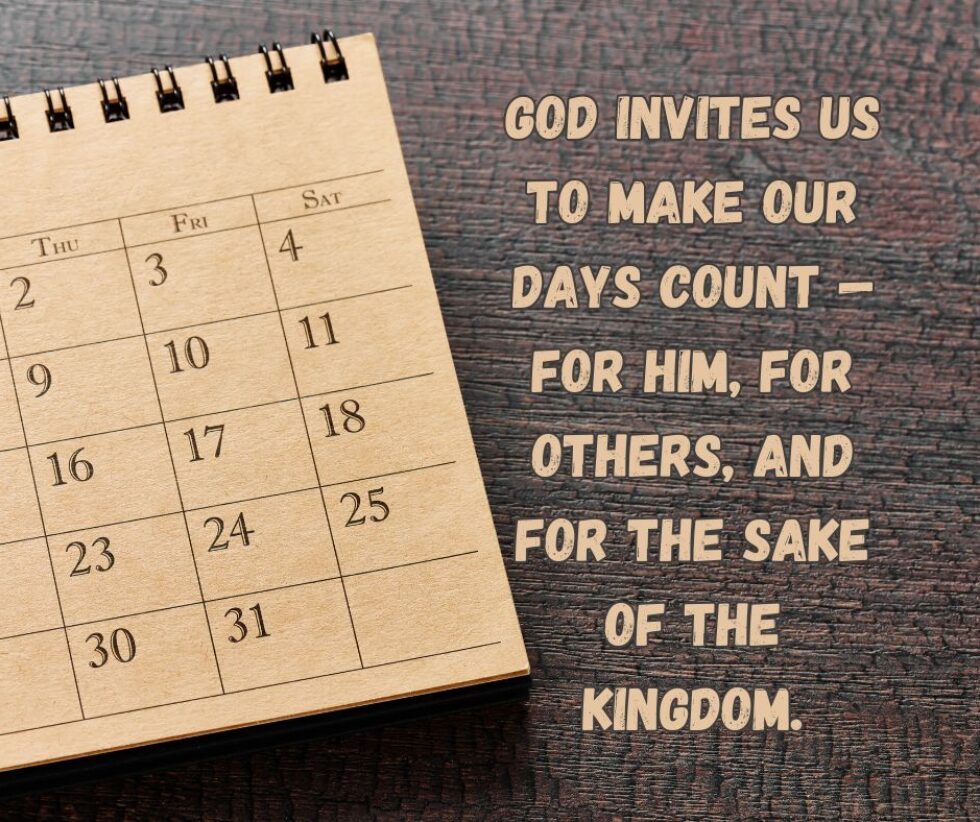 Thu Fri Sat
2 3 4
9 10 11
16 17 18
23 24 25
30 31
GOD INVITES US
TO MAKE OUR
DAYS COUNT –
FOR HIM, FOR
OTHERS, AND
FOR THE SAKE
OF THE
KINGDOM.